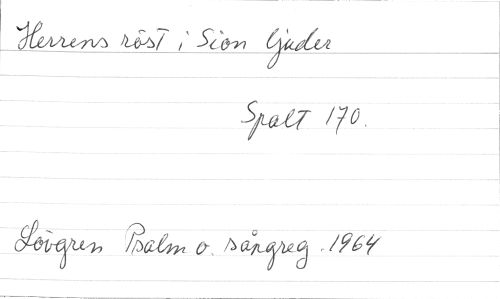 Herrens röst i Sion ljuder
Spalt 170.
Lövgren Psalm o. sångreg. 1964